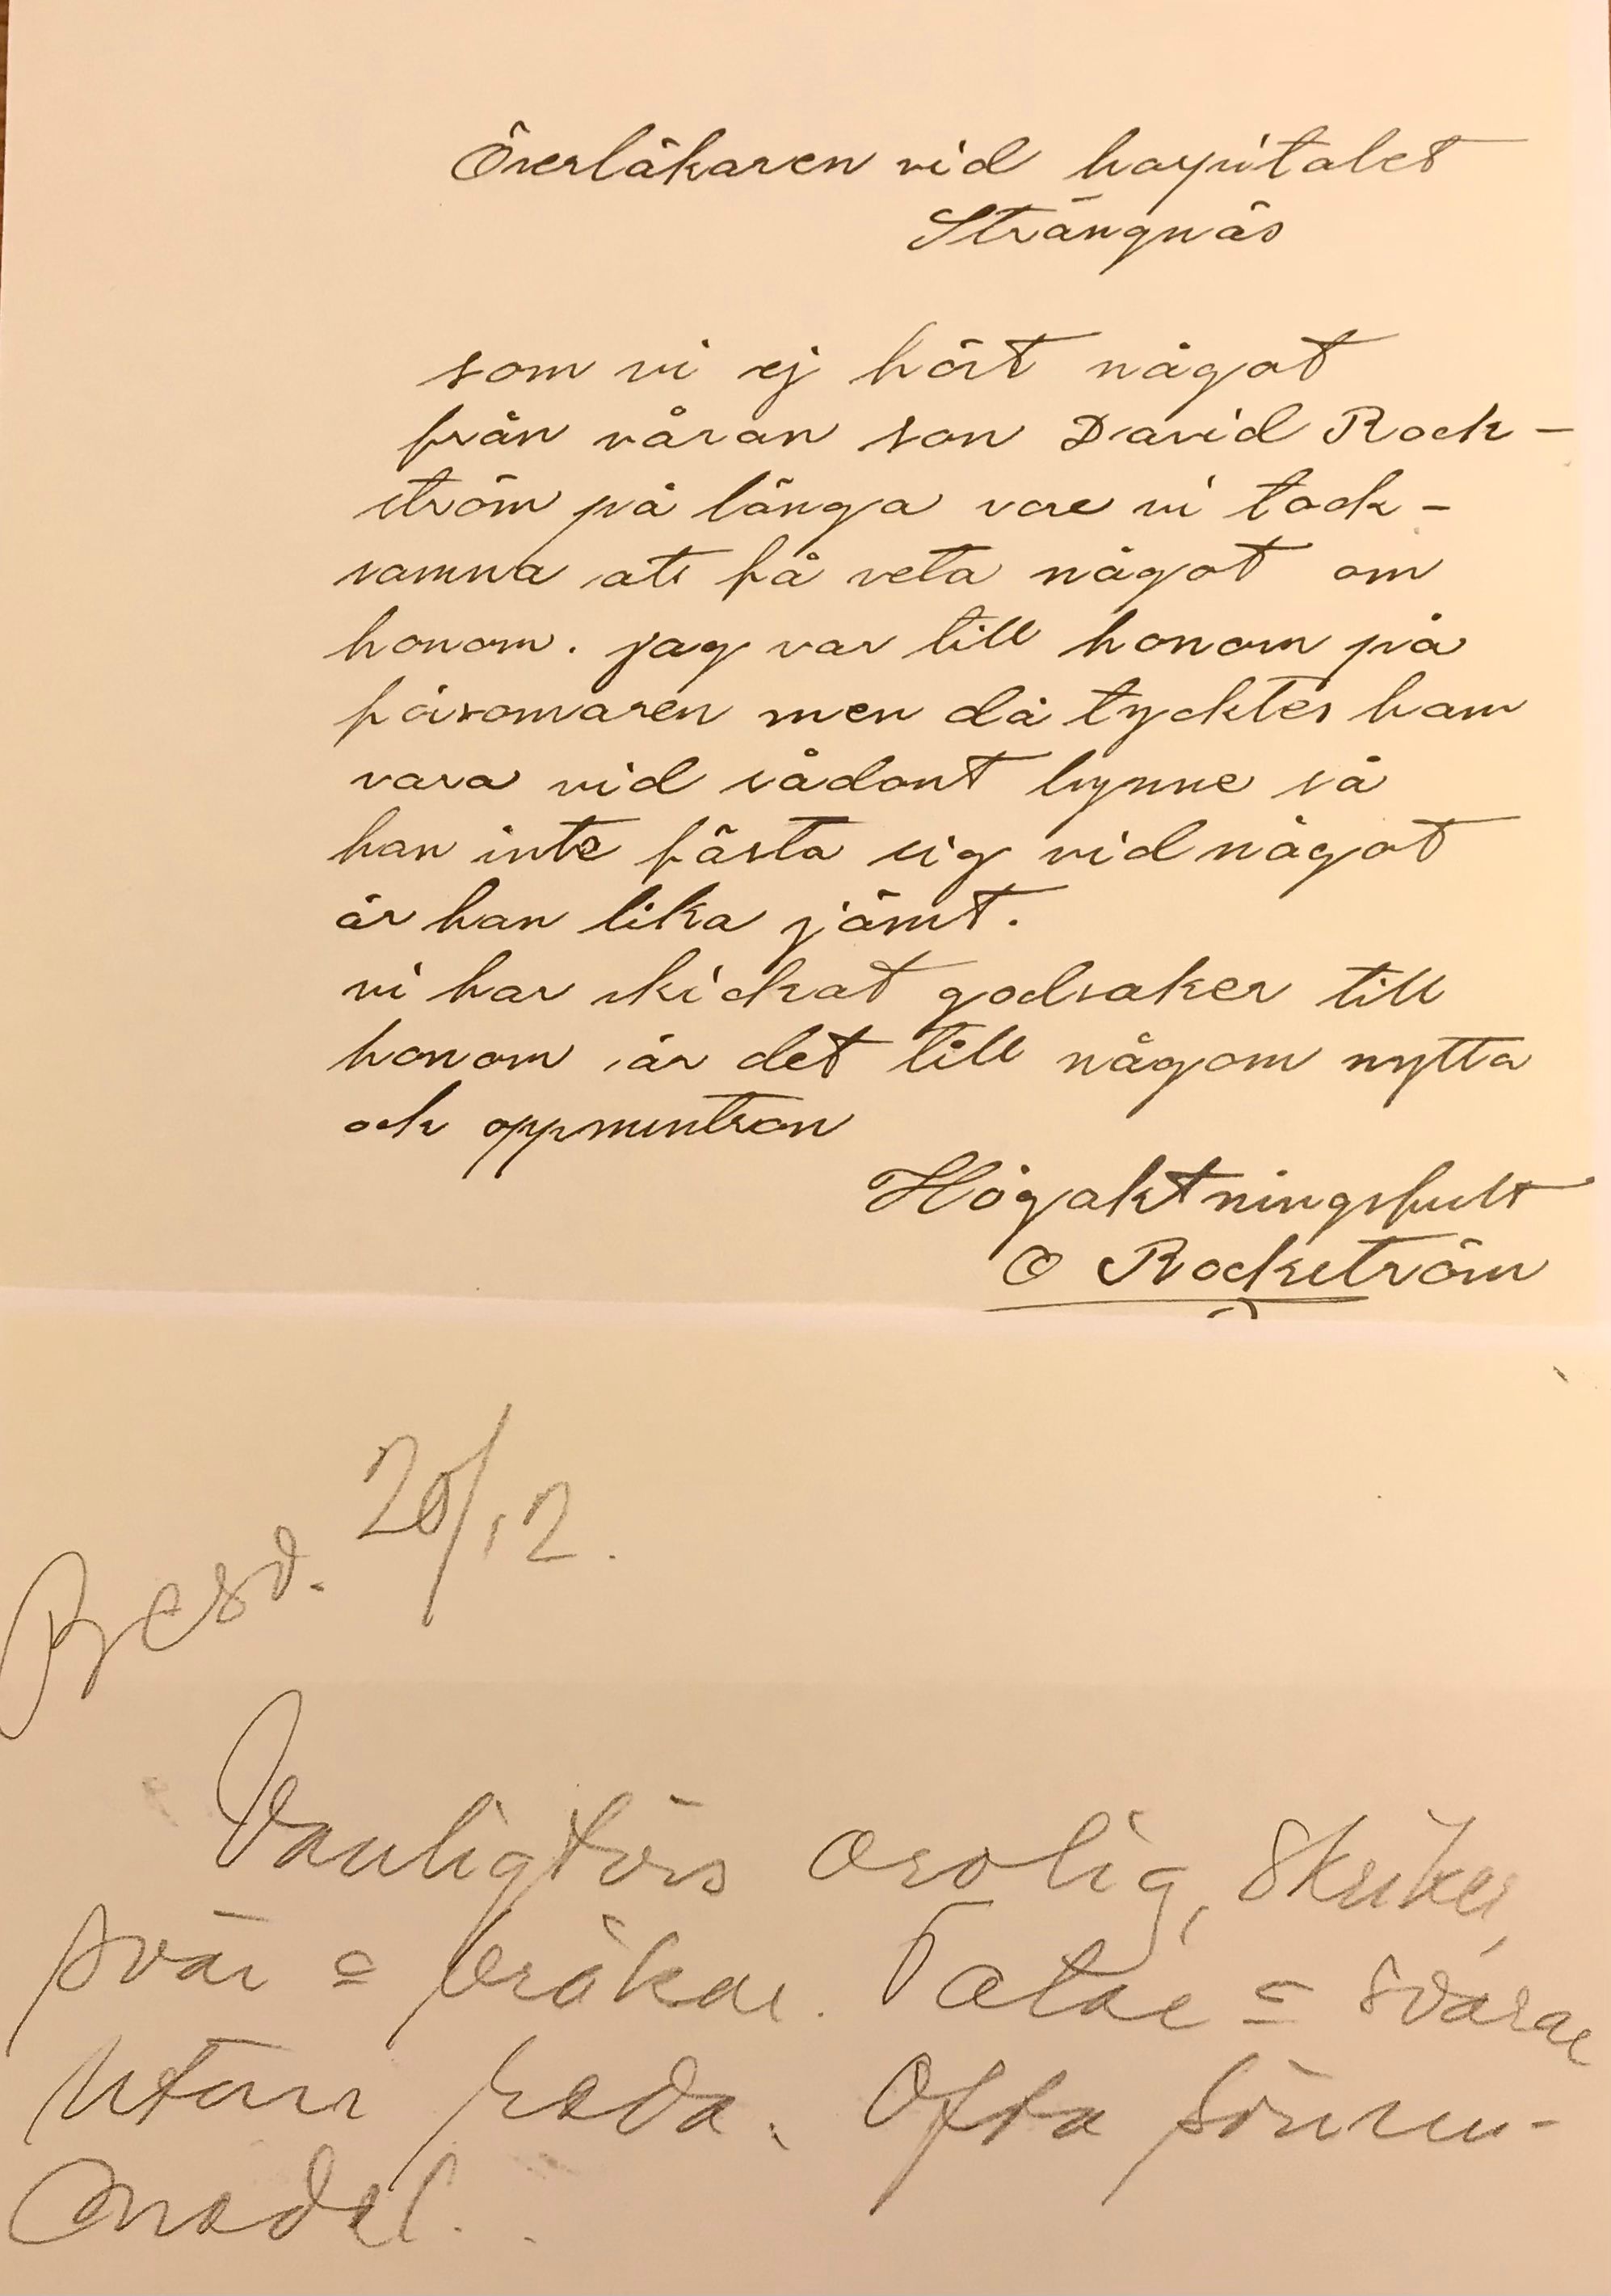 Överläkaren vid hospitalet
Strängnäs
som vi ej hört något
från våran son David Rock-
ström på länga vore vi tack-
samma att få veta något om
honom. jag var till honom på
försomaren men då tycktes ham
vara vid sådant lynne så
han inte fästa sig vid något
är han lika jämt.
vi har skickat godsaker till
honom är det till någom nytta
och oppmuntran
Högaktningsfullt
O Rockström
Besv. 20/12.
Vanligtvis orolig, skriker,
svär = bråkar. Talar = svarar
utan reda. Ofta sömn-